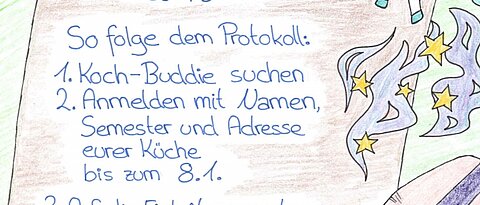 So folge dem Protokoll:
1. Koch-Buddie suchen
2. Anmelden mit Namen,
Semester und Adresse
eurer Küche
bis zum 8.1.